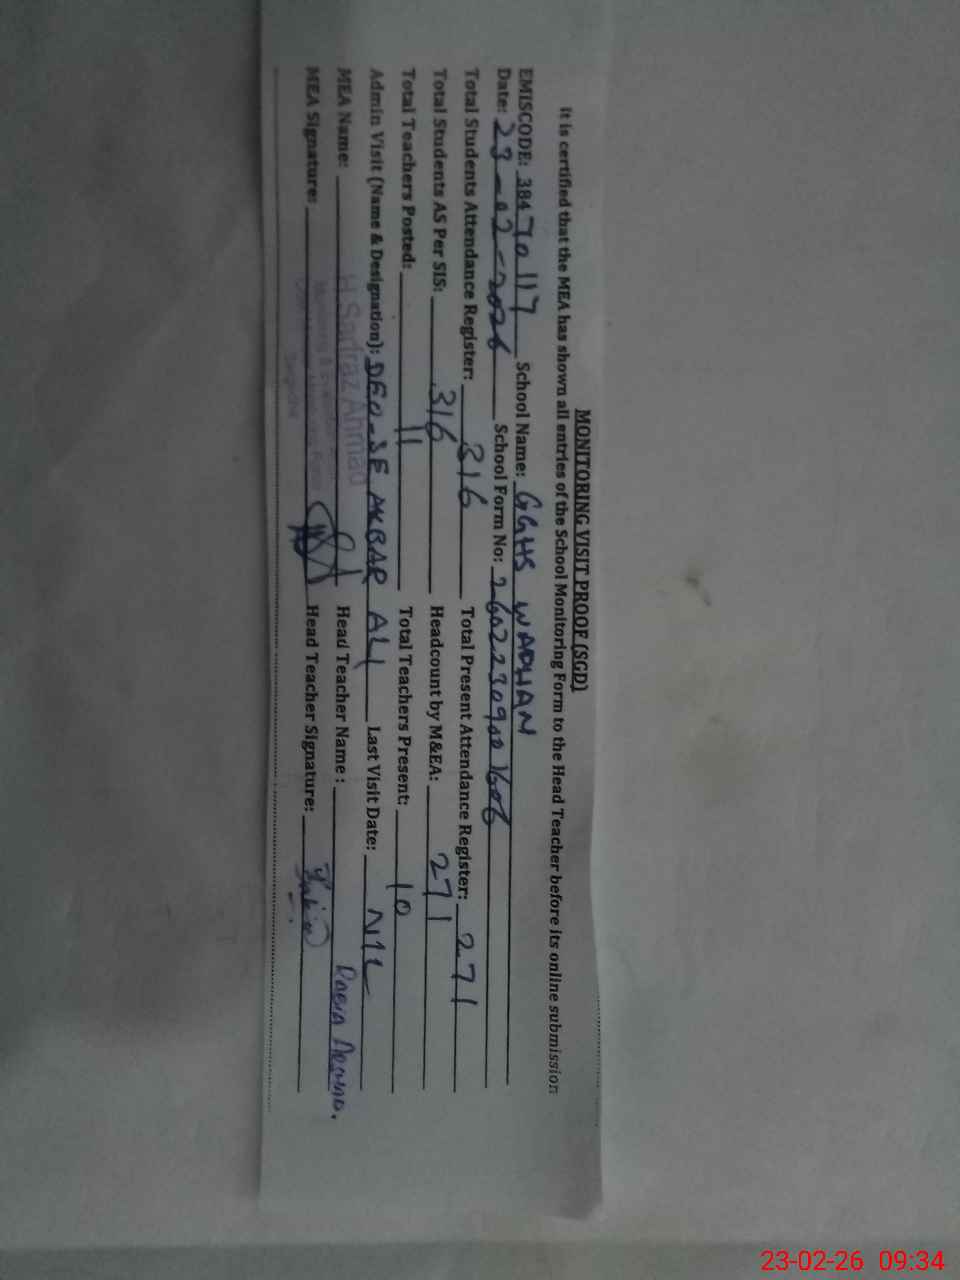 MONITORING VISIT PROOF (SGD)
It is certified that the MEA has shown all entries of the School Monitoring Form to the Head Teacher before its online submission
EMISCODE: 38470117 School Name: GGHS WADHAN
Date: 23-02-2026 School Form No: 2602230900 1606
Total Students Attendance Register: 316 Total Present Attendance Register: 271
Total Students AS Per SIS: 316 Headcount by M&EA: 271
Total Teachers Posted: 11 Total Teachers Present: 10
Admin Visit (Name & Designation): DEO-SE AKBAR ALI Last Visit Date: NIL
MEA Name: H Sarfraz Ahmad Head Teacher Name : Rabia
MEA Signature: Head Teacher Signature: Rabia
23-02-26 09:34